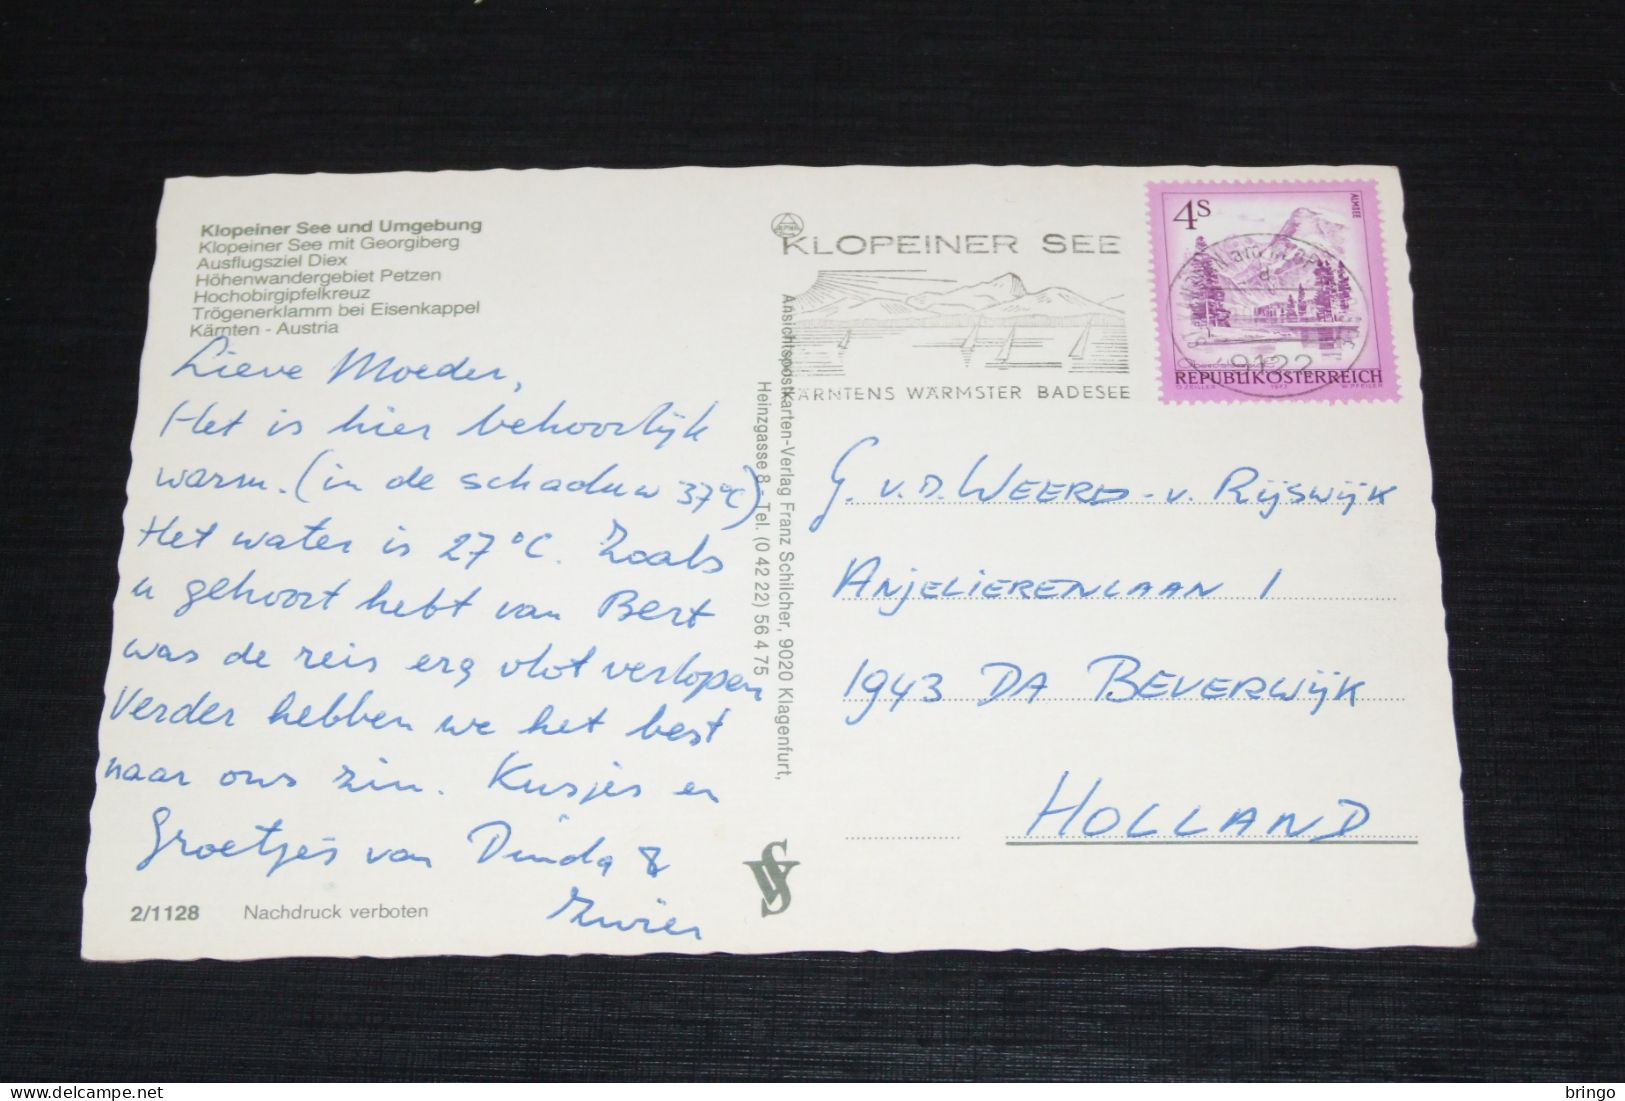 Klopeiner See und Umgebung
Klopeiner See mit Georgiberg
Ausflugsziel Diex
Höhenwandergebiet Petzen
Hochobirgipfelkreuz
Trögenerklamm bei Eisenkappel
Kärnten - Austria
Lieve Moeder,
Het is hier behoorlijk
warm. (in de schaduw 37°C)
Het water is 27°C. Zoals
u gehoort hebt van Bert
was de reis erg vlot verlopen
Verder hebben we het best
naar ons zin. Kusjes en
Groetjes van Dinda &
Zwier
2/1128 Nachdruck verboten
Ansichtspostkarten-Verlag Franz Schilcher, 9020 Klagenfurt,
Heinzgasse 8 - Tel. (0 42 22) 56 4 75
KLOPEINER SEE
KÄRNTENS WÄRMSTER BADESEE
4S
ALMSEE
REPUBLIK ÖSTERREICH
O. ZEILLER 1973 W. PFEILER
9122
G. v.d. WEERD - v. RIJSWIJK
ANJELIERENLAAN 1
1943 DA BEVERWIJK
HOLLAND
bringo